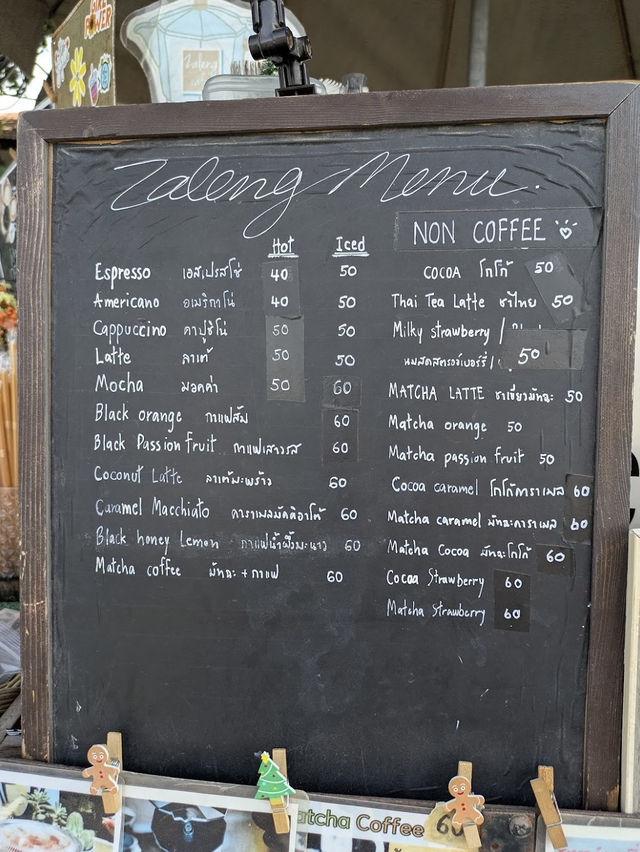 Zaleng Menu.
Hot Iced
Espresso เอสเปรสโซ่ 40 50
Americano อเมริกาโน่ 40 50
Cappuccino คาปูชิโน่ 50 50
Latte ลาเต้ 50 50
Mocha มอคค่า 50 60
Black orange กาแฟส้ม 60
Black Passion fruit กาแฟเสาวรส 60
Coconut Latte ลาเต้มะพร้าว 60
Caramel Macchiato คาราเมลมัคคิอาโต้ 60
Black honey Lemon กาแฟน้ำผึ้งมะนาว 60
Matcha coffee มัทฉะ + กาแฟ 60
NON COFFEE
COCOA โกโก้ 50
Thai Tea Latte ชาไทย 50
Milky strawberry /
นมสดสตรอว์เบอร์รี่ / 50
MATCHA LATTE ชาเขียวมัทฉะ 50
Matcha orange 50
Matcha passion fruit 50
Cocoa caramel โกโก้คาราเมล 60
Matcha caramel มัทฉะคาราเมล 60
Matcha Cocoa มัทฉะโกโก้ 60
Cocoa Strawberry 60
Matcha Strawberry 60
atcha Coffee 60